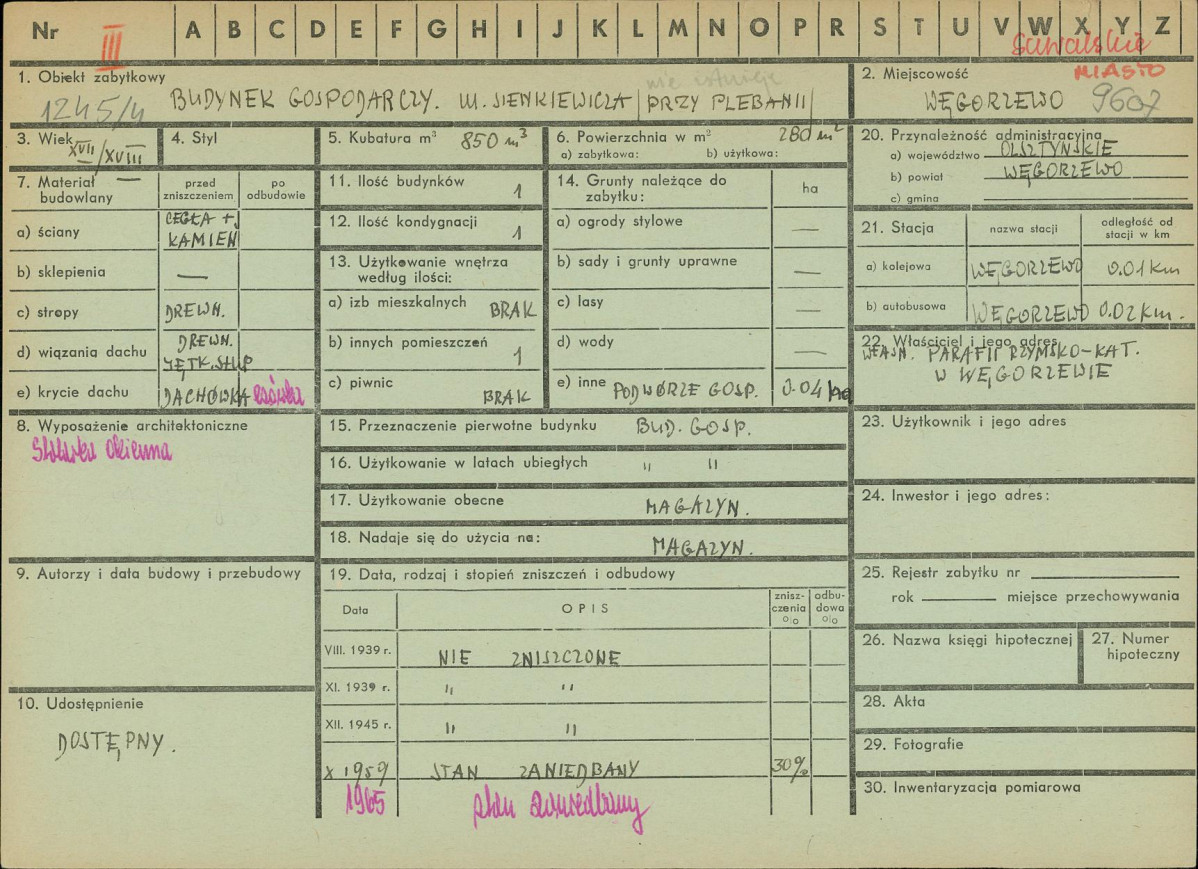 Nr III A B C D E F G H I J K L M N O P R S T U V W X Y Z
suwalskie
MIASTO
1. Obiekt zabytkowy
nie istnieje
1245/4 BUDYNEK GOSPODARCZY. Ul. SIENKIEWICZA /PRZY PLEBANII/
2. Miejscowość
WĘGORZEWO 9607
3. Wiek XVII/XVIII
4. Styl
5. Kubatura m³ 850 m³
6. Powierzchnia w m² 280 m²
a) zabytkowa: b) użytkowa:
20. Przynależność administracyjna
a) województwo OLSZTYŃSKIE
b) powiat WĘGORZEWO
c) gmina
7. Materiał budowlany
przed zniszczeniem
po odbudowie
a) ściany CEGŁA + KAMIEŃ
b) sklepienia —
c) stropy DREWN.
d) wiązania dachu DREWN. JĘTK. STUP
e) krycie dachu DACHÓWKA esówka
11. Ilość budynków 1
12. Ilość kondygnacji 1
13. Użytkowanie wnętrza według ilości:
a) izb mieszkalnych BRAK
b) innych pomieszczeń 1
c) piwnic BRAK
14. Grunty należące do zabytku:
ha
a) ogrody stylowe —
b) sady i grunty uprawne —
c) lasy —
d) wody —
e) inne PODWÓRZE GOSP. 0.04 ha
21. Stacja
nazwa stacji
odległość od stacji w km
a) kolejowa WĘGORZEWO 0.01 km
b) autobusowa WĘGORZEWO 0.02 km.
22. Właściciel i jego adres
WŁASN. PARAFII RZYMSKO-KAT.
W WĘGORZEWIE
8. Wyposażenie architektoniczne
Stolarka okienna
15. Przeznaczenie pierwotne budynku BUD. GOSP.
16. Użytkowanie w latach ubiegłych " "
17. Użytkowanie obecne MAGAZYN.
18. Nadaje się do użycia na: MAGAZYN.
23. Użytkownik i jego adres
24. Inwestor i jego adres:
9. Autorzy i data budowy i przebudowy
19. Data, rodzaj i stopień zniszczeń i odbudowy
Data
OPIS
znisz-
czenia
%
odbu-
dowa
%
VIII. 1939 r. NIE ZNISZCZONE
XI. 1939 r. " "
XII. 1945 r. " "
X 1959 STAN ZANIEDBANY 30%
1965 stan zaniedbany
10. Udostępnienie
DOSTĘPNY.
25. Rejestr zabytku nr
rok miejsce przechowywania
26. Nazwa księgi hipotecznej
27. Numer hipoteczny
28. Akta
29. Fotografie
30. Inwentaryzacja pomiarowa